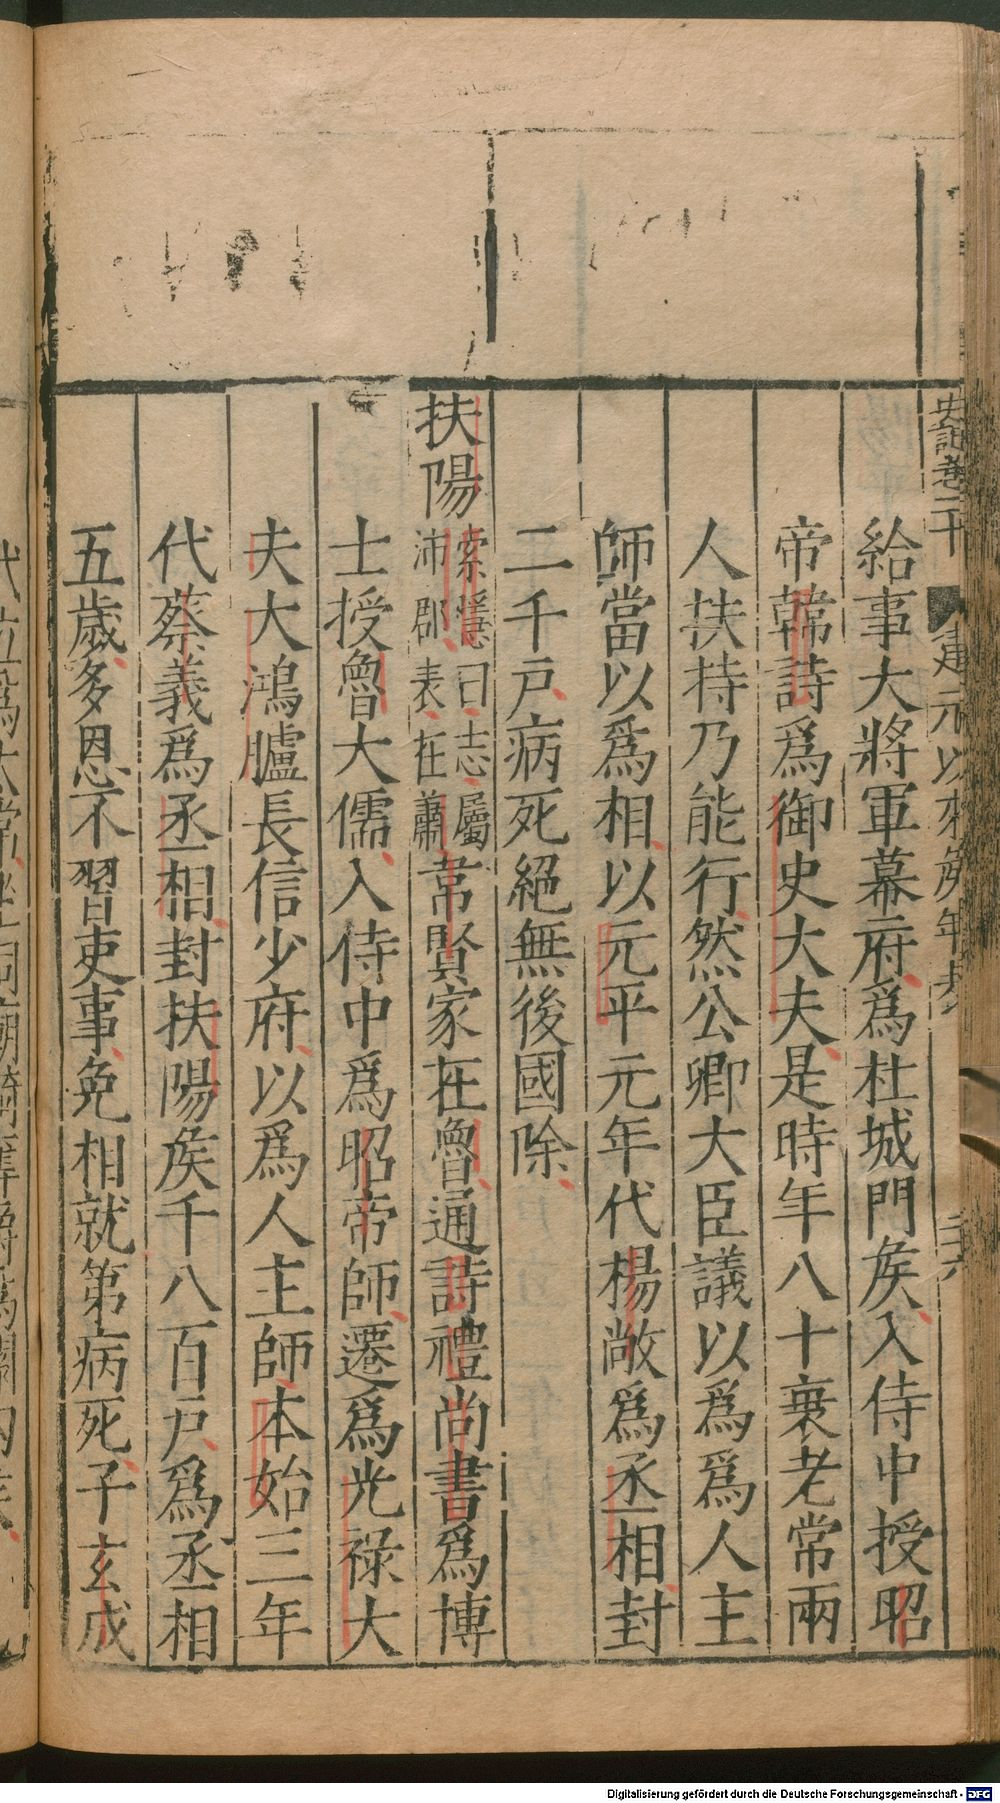 史記卷二十 建元以來矦年表 二六
給事大將軍幕府爲杜城門矦入侍中授昭
帝韓詩爲御史大夫是時年八十衰老常兩
人扶持乃能行然公卿大臣議以爲爲人主
師當以爲相以元平元年代楊敞爲丞相封
二千戸病死絕無後國除
扶陽 索隱曰志屬沛郡表在蕭 韋賢家在魯通詩禮尚書爲博
士授魯大儒入侍中爲昭帝師遷爲光祿大
夫大鴻臚長信少府以爲人主師本始三年
代蔡義爲丞相封扶陽矦千八百戸爲丞相
五歲多恩不習吏事免相就第病死子玄成
Digitalisierung gefördert durch die Deutsche Forschungsgemeinschaft - DFG